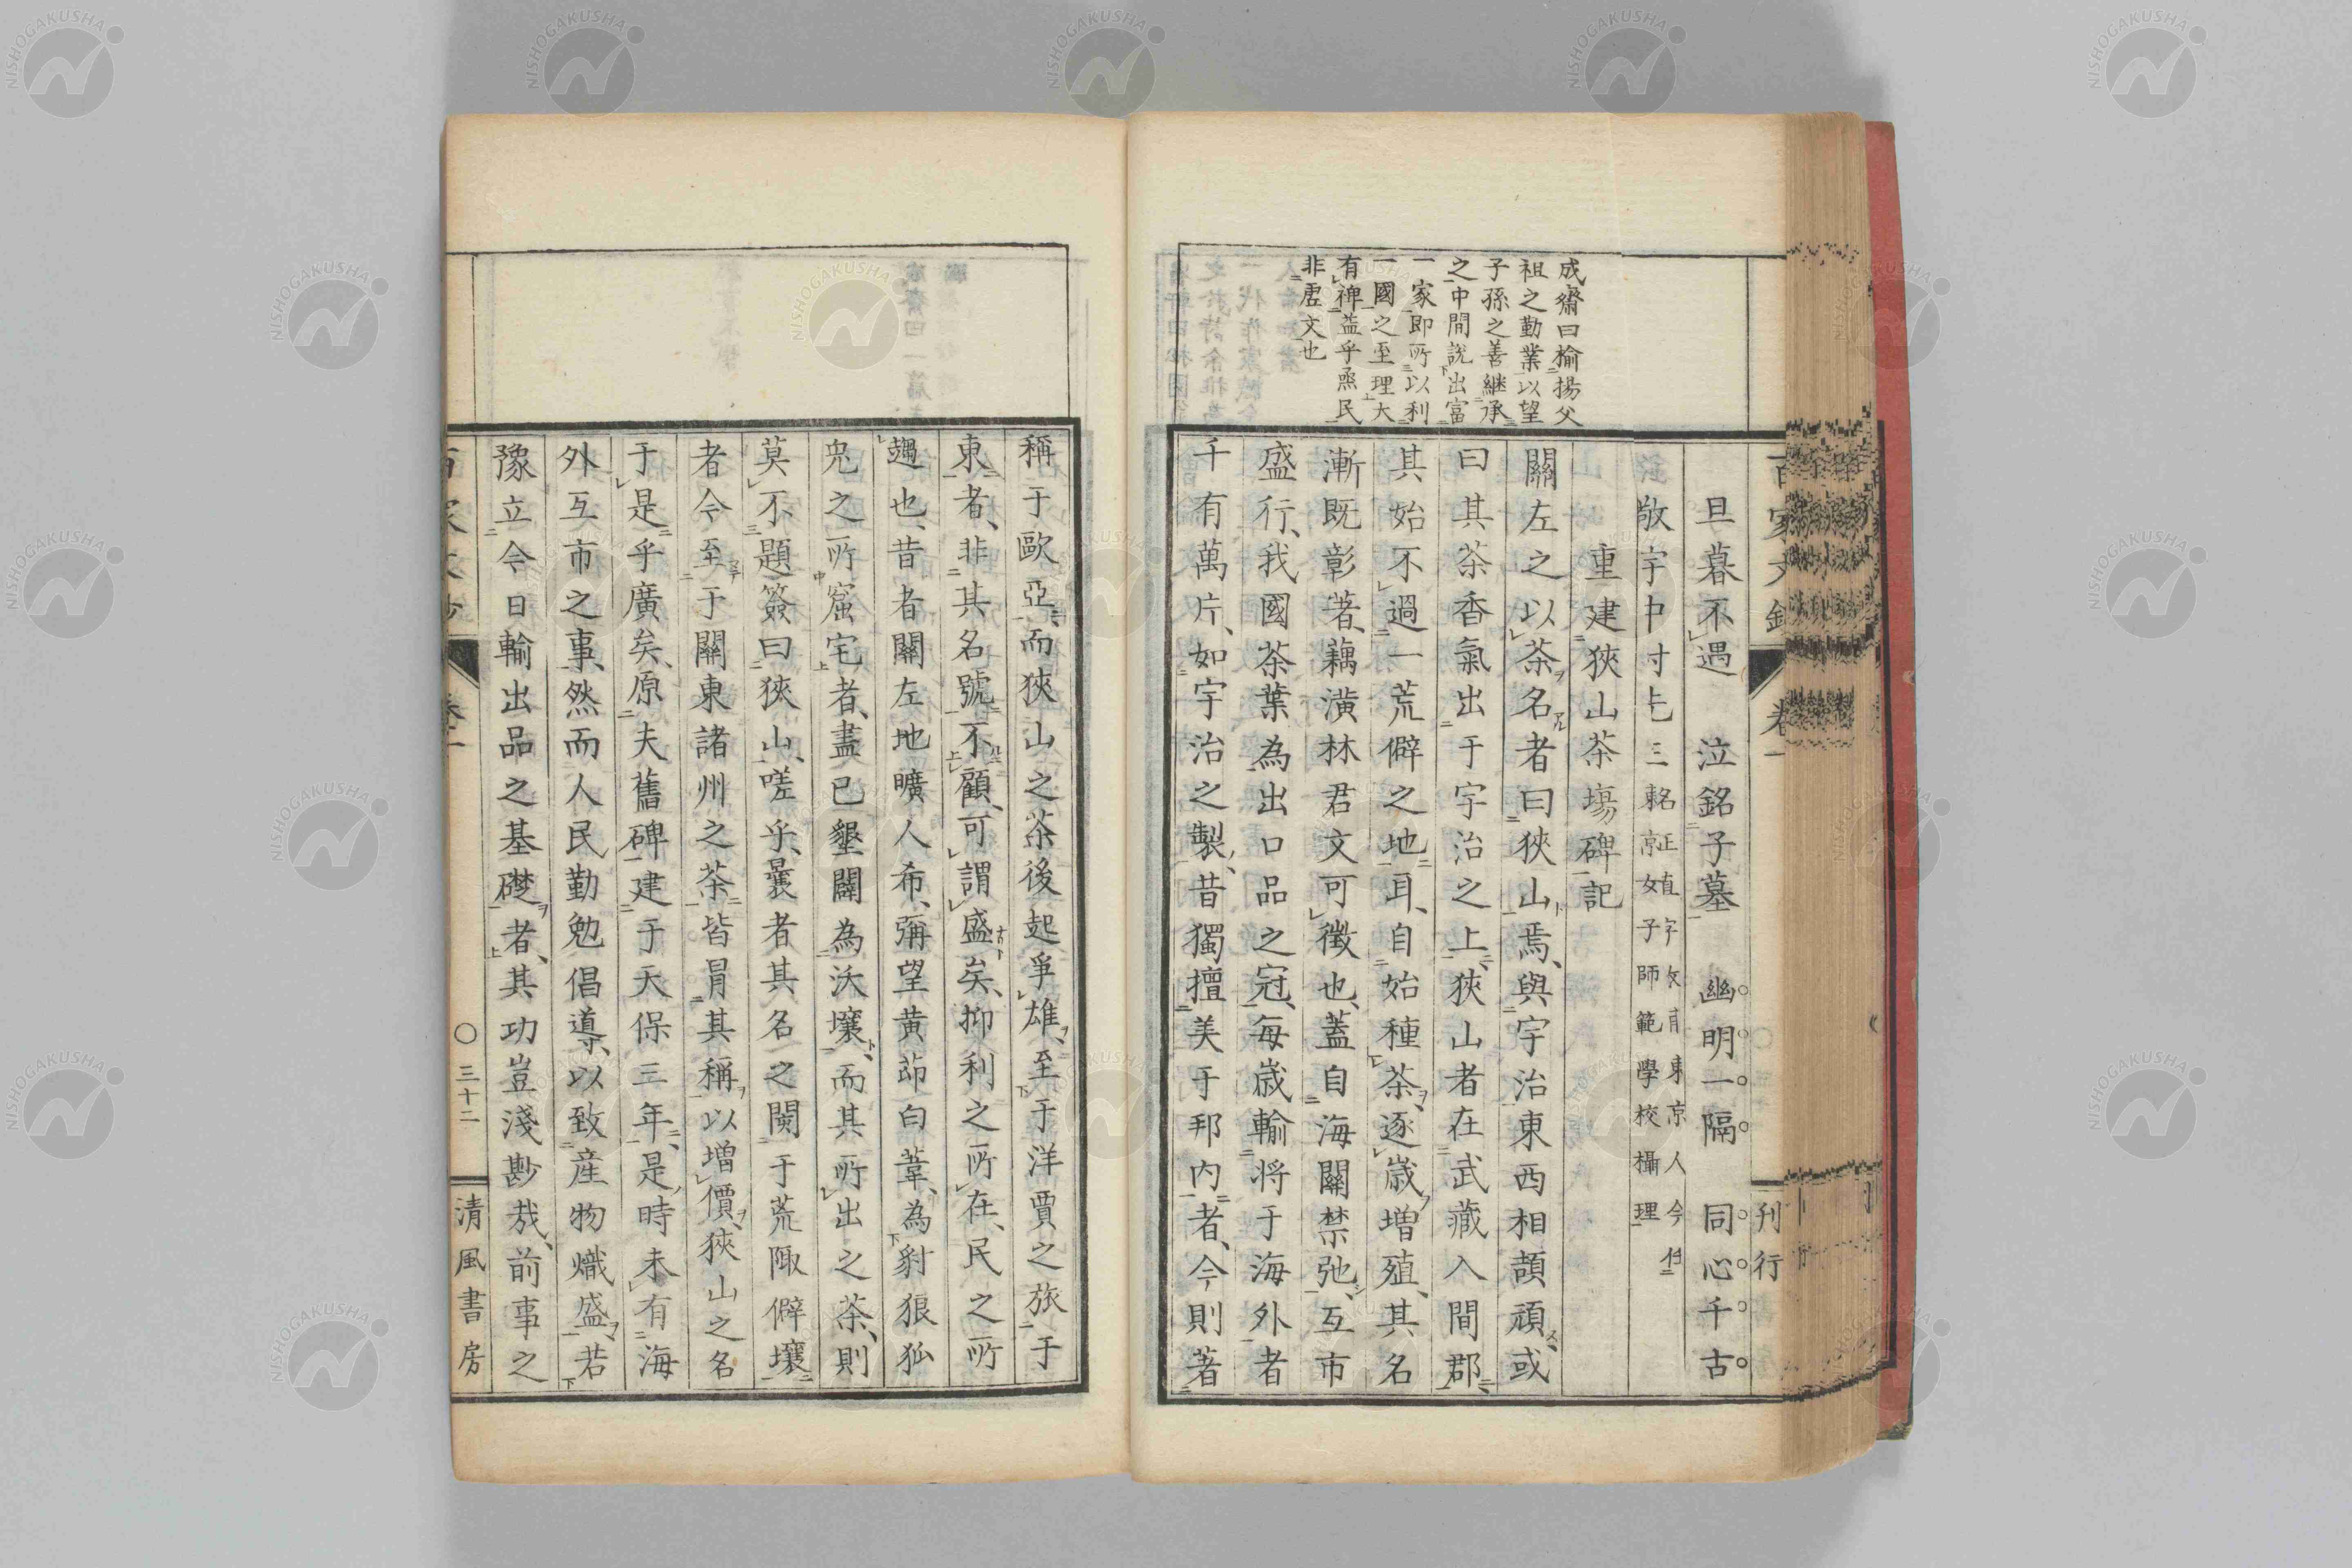 成齋曰揄揚父
祖之勤業以望
子孫之善継承
之中間説出富
一家即所以利
一國之至理大
有裨益乎烝民
非虚文也
卷一
刊行
旦暮不遇　泣銘子墓　幽明一隔　同心千古
敬宇中村
東京女子師範學校攝理
重建狹山茶場碑記
關左之以茶名者曰狹山焉、與宇治東西相頡頏、或
曰其茶香氣出于宇治之上、狹山者在武藏入間郡、
其始不過一荒僻之地耳、自始種茶、逐歳増殖、其名
漸既彰著、藕潢林君文可徴也、蓋自海關禁弛、互市
盛行、我國茶葉為出口品之冠、每歳輸将于海外者
千有萬片、如宇治之製、昔獨擅美于邦内者、今則著
稱于歐亞、而狹山之茶後起爭雄、至于洋賈之旅于
東者、非其名號不顧、可謂盛矣、抑利之所在、民之所
趨也、昔者關左地曠人希、彌望黄茆白葦、為豺狼狐
兎之所窟宅者、盡已墾闢為沃壤、而其所出之茶、則
莫不題簽曰狹山、嗟乎、曩者其名之閴于荒陬僻壤
者今至于關東諸州之茶皆冐其稱以増價、狹山之名
于是乎廣矣、原夫舊碑建于天保三年、是時未有海
外互市之事、然而人民勤勉倡導、以致産物熾盛、若
豫立今日輸出品之基礎者、其功豈淺尠哉、前事之
〇三十二
清風書房